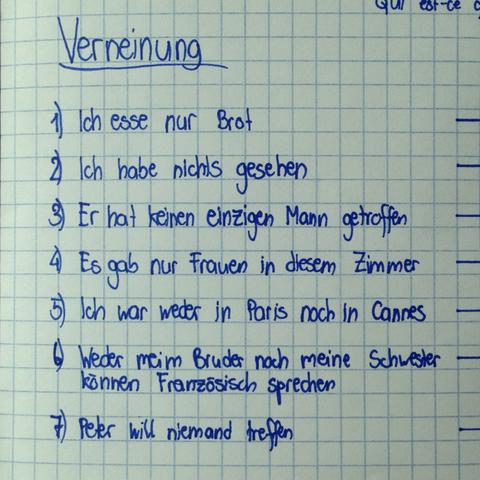 Qui est-ce q
Verneinung
1) Ich esse nur Brot
2) Ich habe nichts gesehen
3) Er hat keinen einzigen Mann getroffen
4) Es gab nur Frauen in diesem Zimmer
5) Ich war weder in Paris noch in Cannes
6) Weder meim Bruder noch meine Schwester
können Französisch sprechen
7) Peter will niemand treffen